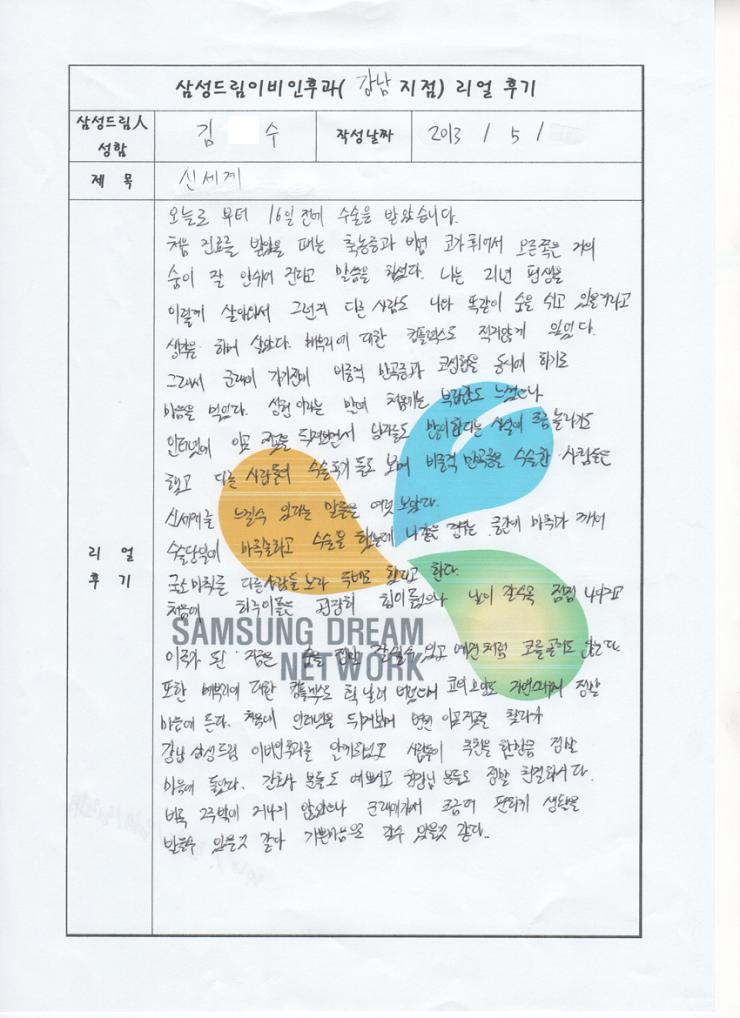 삼성드림이비인후과( 강남 지점) 리얼 후기
삼성드림人 성함
김 수
작성날짜
2013 / 5 /
제 목
신세계
리 얼 후 기
오늘로 부터 16일 전에 수술을 받았습니다.
처음 진료를 받았을 때는 축농증과 비염 코가 휘어서 오른쪽은 거의
숨이 잘 안쉬어 진다고 말씀을 하셨다. 나는 21년 평생을
이렇게 살아와서 그런지 다른 사람도 나와 똑같이 숨을 쉬고 있을거라고
생각을 하며 살았다. 매부리에 대한 컴플렉스도 적지않게 있었다.
그래서 군대에 가기전에 비중격 만곡증과 코성형을 동시에 하기로
마음을 먹었다. 성형 이라는 말에 처음에는 복잡함도 느꼈으나
인터넷에 이곳 저곳을 뒤져보면서 남자들도 많이한다는 사실에 조금 놀라기도
했고 다른 사람들의 수술후기 들도 보며 비중격 만곡증을 수술한 사람들은
신세계를 느낄수 있다는 말들을 여럿 보았다.
수술당일에 수술을 했는데 나같은 경우는 중간에 마취가 깨어
국소마취를 다른사람들 보다 했다고 한다.
처음에 굉장히 힘이들었으나 날이 갈수록 점점 나아지고
이주가 된 지금은 숨을 정말 잘쉴수 있고 예전처럼 코를골지도 않는다.
또한 매부리에 대한 컴플렉스도 훅 날려 버렸으며 코의모양도 자연스러워 정말
마음에 든다. 처음에 인터넷을 뒤져보며 이곳저곳을 찾다가
강남 삼성드림 이비인후과를 알게되었고 사람들이 추천을 한만큼 정말
마음에 들었다. 간호사 분들도 예쁘시고 원장님 분들도 정말 친절하시다.
비록 2주밖에 지나지 않았으나 군대에가서 조금더 편하게 생활을
할수 있을것 같아 기쁜마음으로 갈수 있을것 같다..
SAMSUNG DREAM
NETWORK